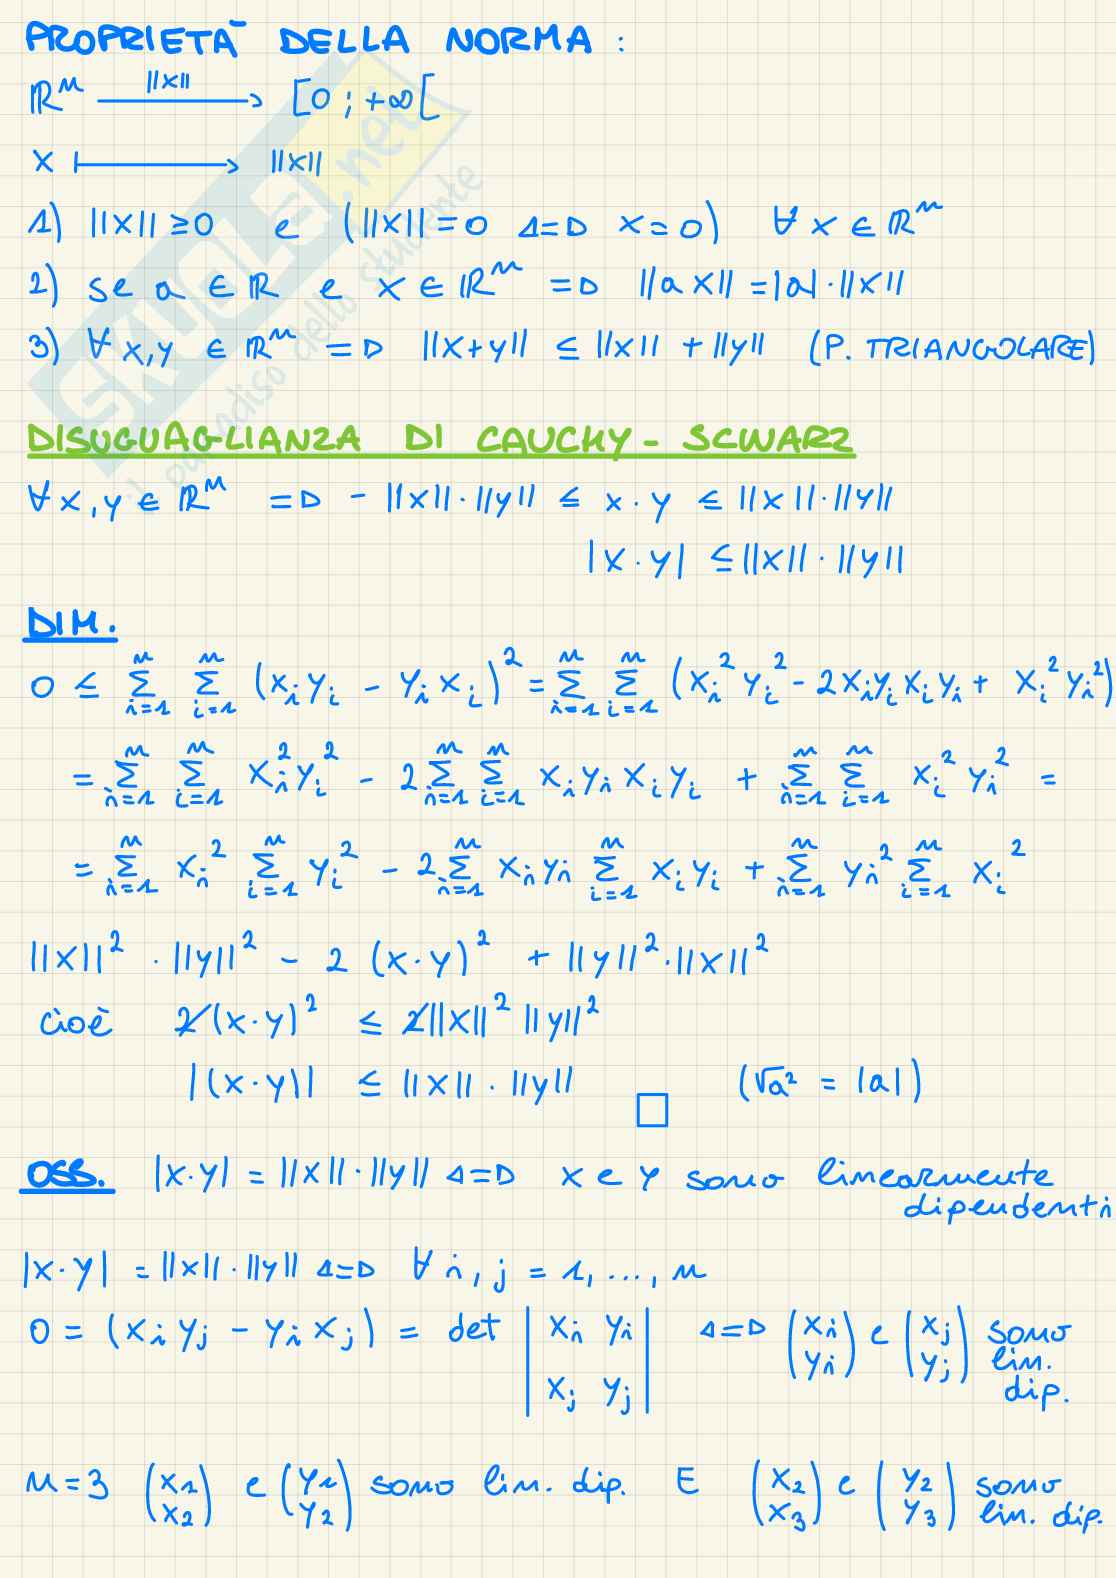 PROPRIETÀ DELLA NORMA :
ℝⁿ —||x||→ [0 ; +∞[
x ↦ ||x||
1) ||x|| ≥ 0 e (||x|| = 0 ⇔ x = 0) ∀ x ∈ ℝⁿ
2) se a ∈ ℝ e x ∈ ℝⁿ ⇒ ||a x|| = |a| · ||x||
3) ∀ x, y ∈ ℝⁿ ⇒ ||x+y|| ≤ ||x|| + ||y|| (P. TRIANGOLARE)
SKUOLA.net
il paradiso dello studente
DISUGUAGLIANZA DI CAUCHY - SCWARZ
∀ x, y ∈ ℝⁿ ⇒ - ||x|| · ||y|| ≤ x · y ≤ ||x|| · ||y||
|x · y| ≤ ||x|| · ||y||
DIM.
0 ≤ Σⁿᵢ₌₁ Σⁿᵢ₌₁ (xᵢ yᵢ - yᵢ xᵢ)² = Σⁿᵢ₌₁ Σⁿᵢ₌₁ (xᵢ² yᵢ² - 2xᵢyᵢxᵢyᵢ + xᵢ² yᵢ²)
= Σⁿᵢ₌₁ Σⁿᵢ₌₁ xᵢ² yᵢ² - 2 Σⁿᵢ₌₁ Σⁿᵢ₌₁ xᵢ yᵢ xᵢ yᵢ + Σⁿᵢ₌₁ Σⁿᵢ₌₁ xᵢ² yᵢ² =
= Σⁿᵢ₌₁ xᵢ² Σⁿᵢ₌₁ yᵢ² - 2 Σⁿᵢ₌₁ xᵢ yᵢ Σⁿᵢ₌₁ xᵢ yᵢ + Σⁿᵢ₌₁ yᵢ² Σⁿᵢ₌₁ xᵢ²
||x||² · ||y||² - 2 (x · y)² + ||y||² · ||x||²
cioè 2(x · y)² ≤ 2||x||² ||y||²
|(x · y)| ≤ ||x|| · ||y|| □ (√a² = |a|)
OSS. |x · y| = ||x|| · ||y|| ⇔ x e y sono linearmente
dipendenti
|x · y| = ||x|| · ||y|| ⇔ ∀ i, j = 1, ..., n
0 = (xᵢ yⱼ - yᵢ xⱼ) = det | xᵢ yᵢ | ⇔ (xᵢ yᵢ) e (xⱼ yⱼ) sono
| xⱼ yⱼ | lin.
dip.
n = 3 (x₁ x₂) e (y₁ y₂) sono lin. dip. E (x₂ x₃) e (y₂ y₃) sono
lin. dip.